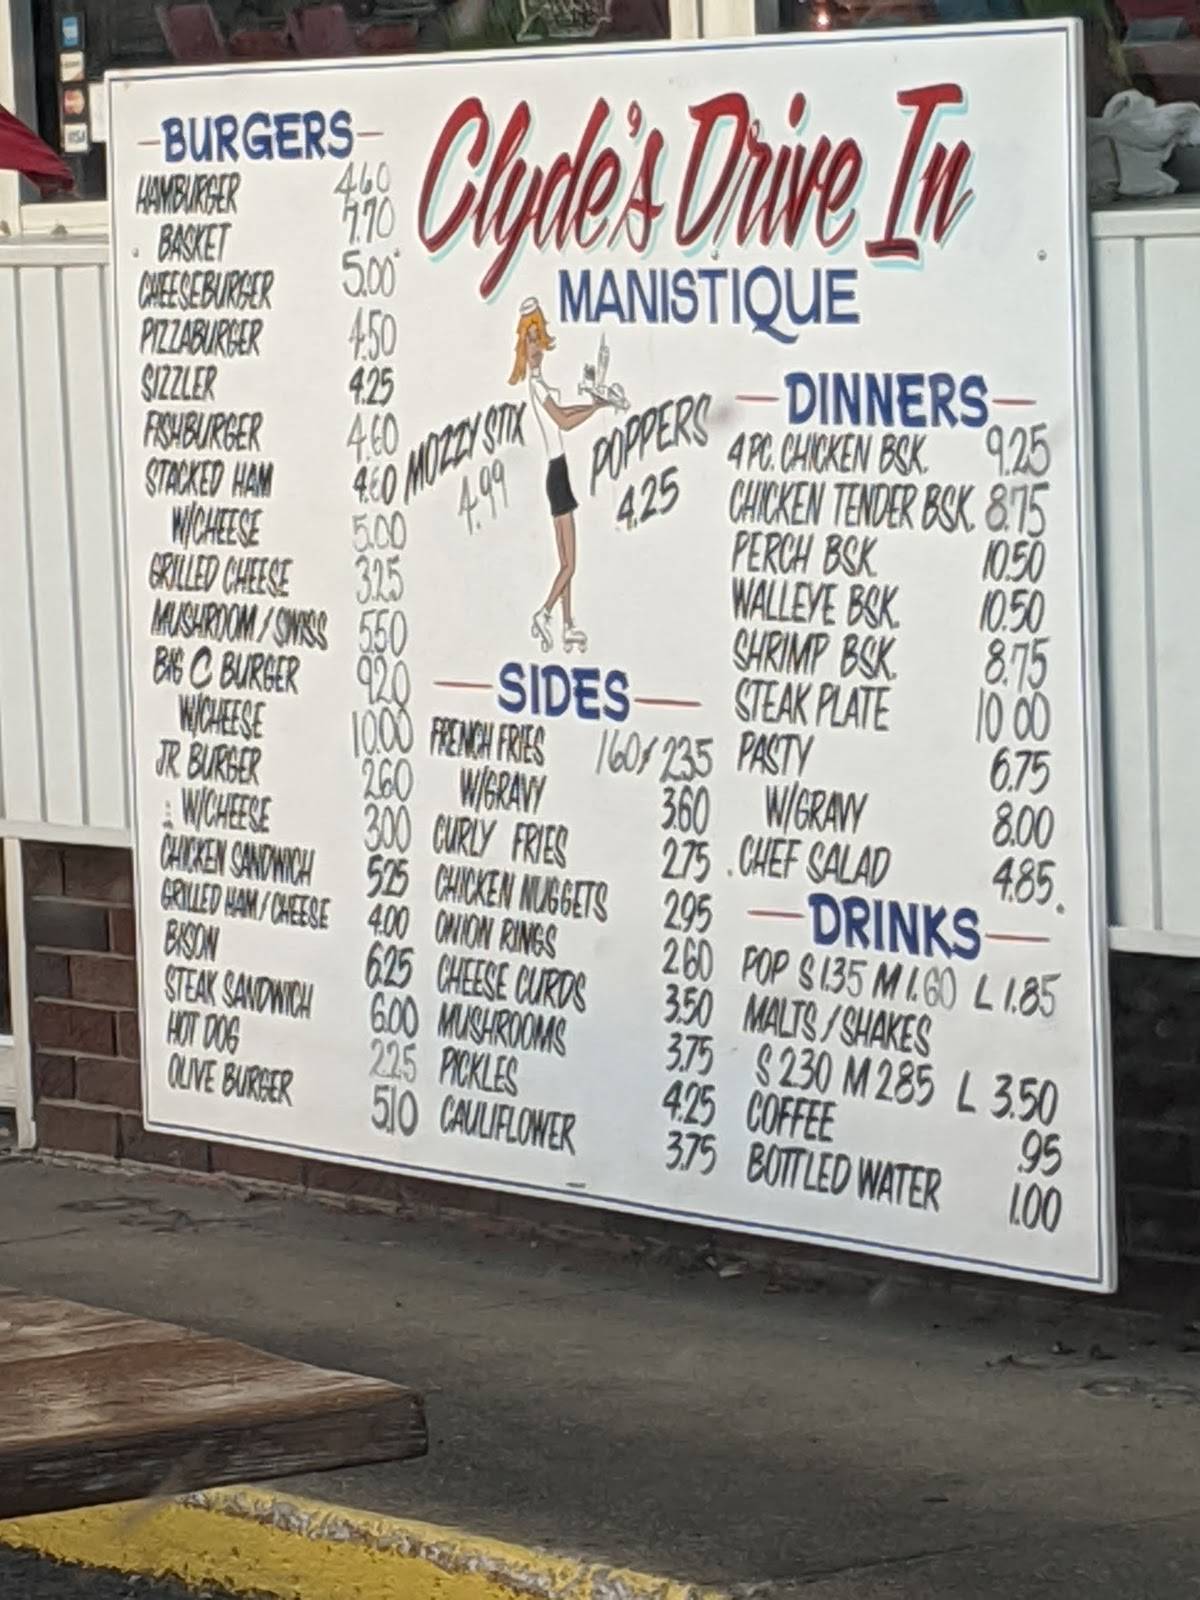 Clyde's Drive In
MANISTIQUE
BURGERS
HAMBURGER 4.60
BASKET 7.70
CHEESEBURGER 5.00
PIZZABURGER 4.50
SIZZLER 4.25
FISHBURGER 4.60
STACKED HAM 4.60
W/CHEESE 5.00
GRILLED CHEESE 3.25
MUSHROOM/SWISS 5.50
BIG C BURGER 9.20
W/CHEESE 10.00
JR. BURGER 2.60
W/CHEESE 3.00
CHICKEN SANDWICH 5.25
GRILLED HAM/CHEESE 4.00
BISON 6.25
STEAK SANDWICH 6.00
HOT DOG 2.25
OLIVE BURGER 5.10
MOZZY STIX
4.99
POPPERS
4.25
SIDES
FRENCH FRIES 1.60/2.35
W/GRAVY 3.60
CURLY FRIES 2.75
CHICKEN NUGGETS 2.95
ONION RINGS 2.60
CHEESE CURDS 3.50
MUSHROOMS 3.75
PICKLES 4.25
CAULIFLOWER 3.75
DINNERS
4 PC. CHICKEN BSK. 9.25
CHICKEN TENDER BSK. 8.75
PERCH BSK. 10.50
WALLEYE BSK. 10.50
SHRIMP BSK. 8.75
STEAK PLATE 10.00
PASTY 6.75
W/GRAVY 8.00
CHEF SALAD 4.85
DRINKS
POP S 1.35 M 1.60 L 1.85
MALTS/SHAKES
S 2.30 M 2.85 L 3.50
COFFEE .95
BOTTLED WATER 1.00
VISA